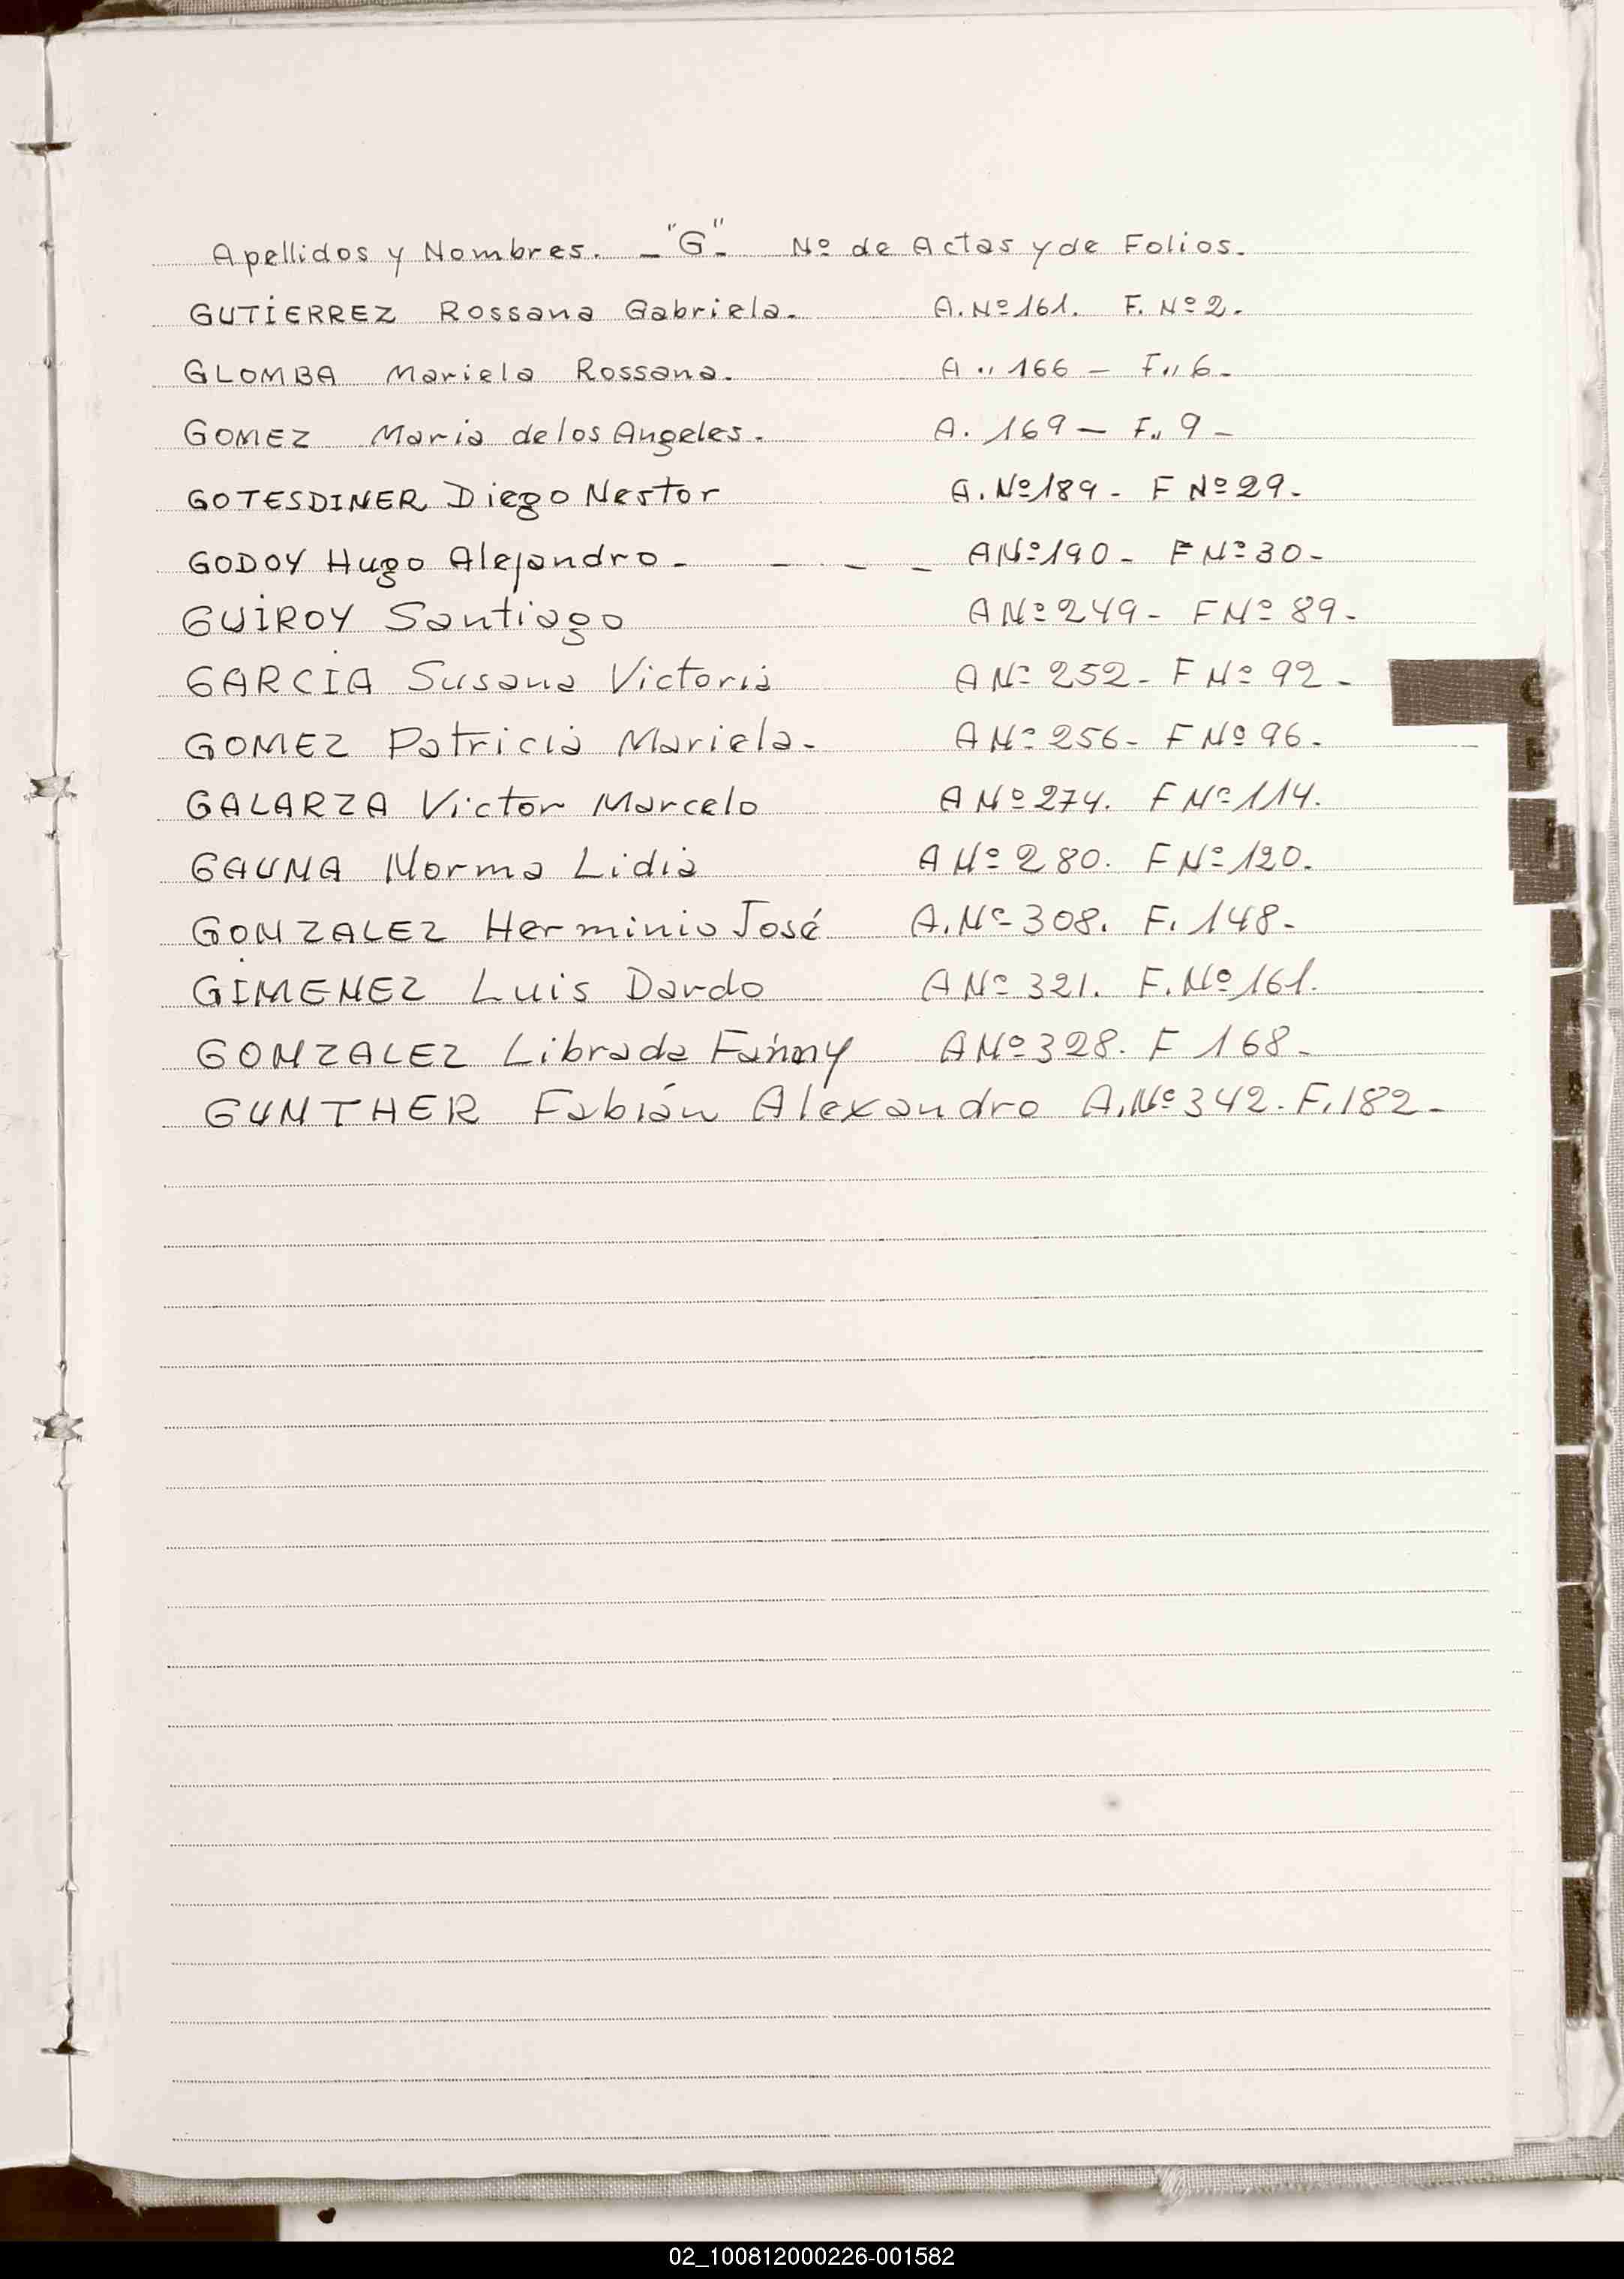 Apellidos y Nombres. - "G" - Nº de Actas y de Folios.
GUTIERREZ Rossana Gabriela. A. Nº 161. F. Nº 2.
GLOMBA Mariela Rossana. A ,, 166 - F ,, 6.
GOMEZ Maria de los Angeles. A. 169 - F ,, 9 -
GOTESDINER Diego Nestor A. Nº 189 - F Nº 29.
GODOY Hugo Alejandro - - - - A Nº 190 - F Nº 30 -
GUIROY Santiago A Nº 249 - F Nº 89 -
GARCIA Susana Victoria A Nº 252 - F Nº 92 -
GOMEZ Patricia Mariela - A Nº 256 - F Nº 96 -
GALARZA Victor Marcelo A Nº 274. F Nº 114.
GAUNA Norma Lidia A Nº 280. F Nº 120.
GONZALEZ Herminio José A. Nº 308. F. 148 -
GIMENEZ Luis Dardo A Nº 321. F. Nº 161.
GONZALEZ Librada Fanny A Nº 328. F 168 -
GUNTHER Fabián Alexandro A. Nº 342. F. 182 -
02_100812000226-001582